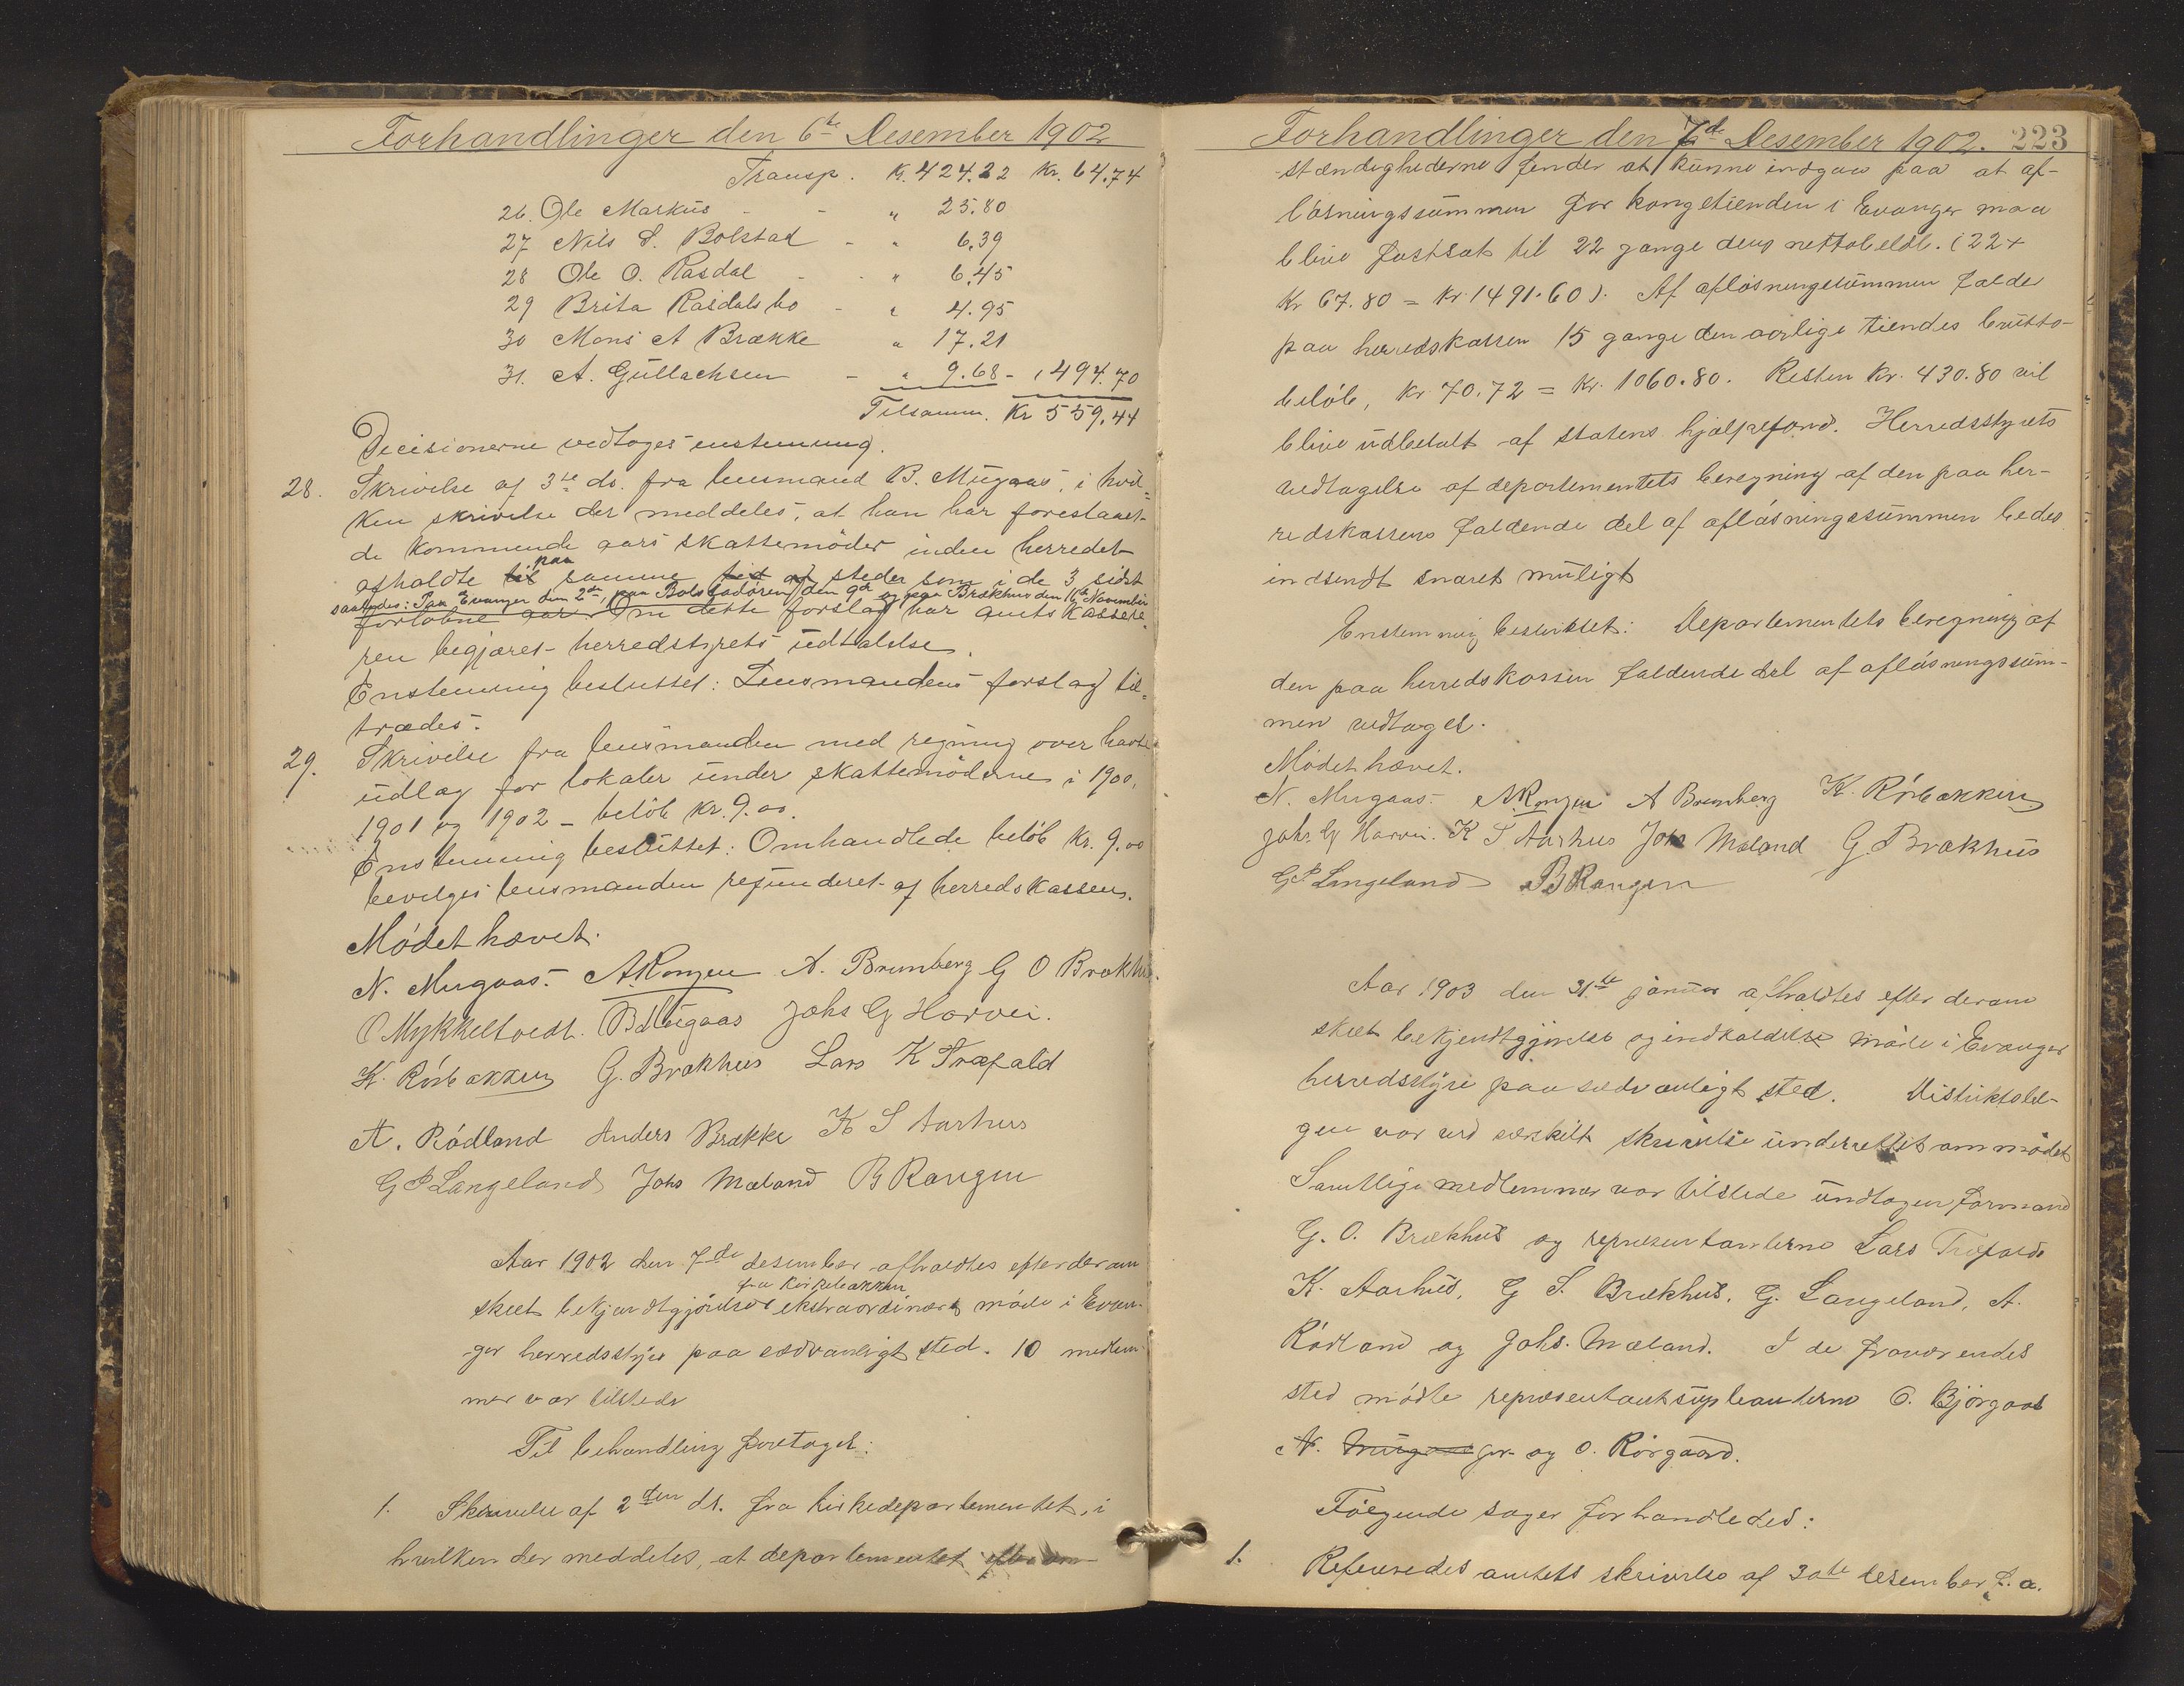 Forhandlinger den 6te Desember 1902
Transp. Kr. 424.22 Kr. 64.74
26. Ole Markus - - " 25.80
27 Nils S. Bolstad - " 6.39
28 Ole O. Rasdal - " 6.45
29 Brita Rasdals bo - " 4.95
30 Mons A Brække " 17.21
31. A. Gullachsen - " 9.68 - " 494.70
Tilsamm. Kr 559.44
Decisionerne vedtoges enstemmig.
28. Skrivelse af 3die ds. fra lensmand B. Mugaas, i hvil-
ken skrivelse der meddeles, at han har foreslaaet
de kommende aars skattemöder inden herredet
afholdte til paa samme tid og steder som i de 3 sidst
saaledes: Paa Evanger den 2den, paa Bolstadören den 9de og paa Brækhus den 11te November
forløbne aar. Om dette forslag har amtskassere-
ren begjæret herredstyrets udtalelse.
Enstemmig besluttet: Lensmandens forslag til-
trædes.
29. Skrivelse fra lensmanden med regning over havte
udlæg for lokaler under skattemöderne i 1900,
1901 og 1902 - belöb kr. 9.00.
Enstemmig besluttet: Omhandlede belöb kr. 9.00
bevilges lensmanden refunderet af herredskassen.
Mödet hævet.
N. Mugaas. A Rongen A. Brunberg G O Brækhus.
O Mykkeltvedt. B Mugaas Johs G Horvei.
K. Rörbakken G. Brækhus Lars K Træfald
A. Rödland Anders Brække K S Aarhus
G P Langeland Johs Mæland B Rongen
Aar 1902 den 7de desember afholdtes efter derom
fra kirkebakken
skeet bekjendtgjörelse ekstraordinært möde i Evan-
ger herredsstyre paa sædvanligt sted. 10 medlem-
mer var tilstede
Til behandling foretoges:
1. Skrivelse af 2den ds. fra kirkedepartementet, i
hvilken der meddeles, at departementet efter om-
Forhandlinger den 7de Desember 1902. 223
stændighederne finder at kunne indgaa paa at af-
lösningssummen for kongetienden i Evanger maa
blive fastsat til 22 gange dens nettobelöb. (22 x
Kr 67.80 = Kr. 1491.60). Af aflösningssummen falder
paa herredskassen 15 gange den aarlige tiendes brutto-
belöb, kr 70.72 = kr. 1060.80. Resten kr. 430.80 vil
blive udbetalt af statens hjælpefond. Herredsstyrets
vedtagelse af departementets beregning af den paa her-
redskassens faldende del af aflösningssummen bedes
indsendt snarest muligt
Enstemmig besluttet: Departementets beregning af
den paa herredskassen faldende del af aflösningssum-
men vedtages.
Mödet hævet.
N. Mugaas. A Rongen A Brunberg K. Rörbakken
Johs. G Horvei. K S Aarhus Johs Mæland G. Brækhus
G P Langeland B Rongen
Aar 1903 den 31te januar afholdtes efter derom
skeet bekjendtgjörelse og indkaldelse möde i Evanger
herredsstyre paa sædvanligt sted. Distriktslæ-
gen var ved særskilt skrivelse underrettet om mödet
Samtlige medlemmer var tilstede undtagen formand
G. O. Brækhus og repræsentanterne Lars Træfald
K. Aarhus, G S. Brækhus, G. Langeland, A.
Rödland og Johs. Mæland. I de fraværendes
sted mödte repræsentantsupleanterne O. Björgaas
N. Mugaas jr. og O. Rörgaard.
Fölgende sager forhandledes:
1. Refereredes amtets skrivelse af 30te desember f. a.